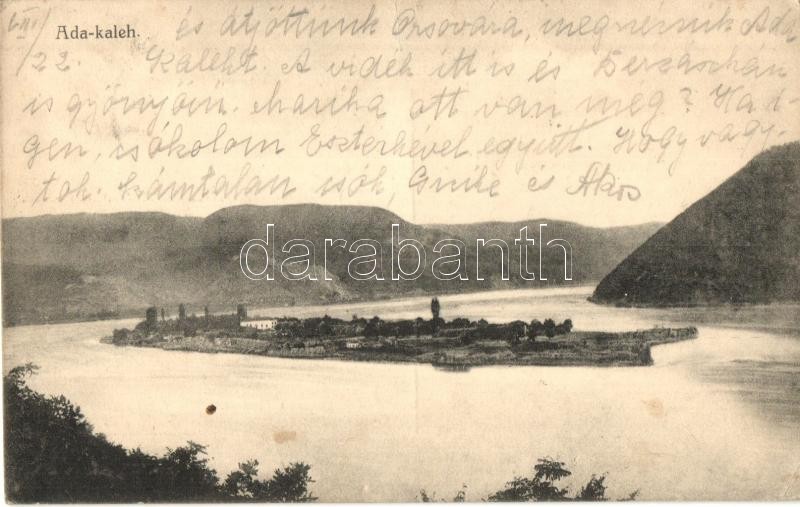 Ada-kaleh.
VIII/22.
és átjöttünk Orsovára, megnézniк Ada
Kaleht. A vidék itt is és Berzaschán
is gyönyörű. Mariha ott van még? Ha i-
gen, csókolom Eszterkével együtt. Hogy vagy-
tok. Számtalan csók, és Ákos
darabanth